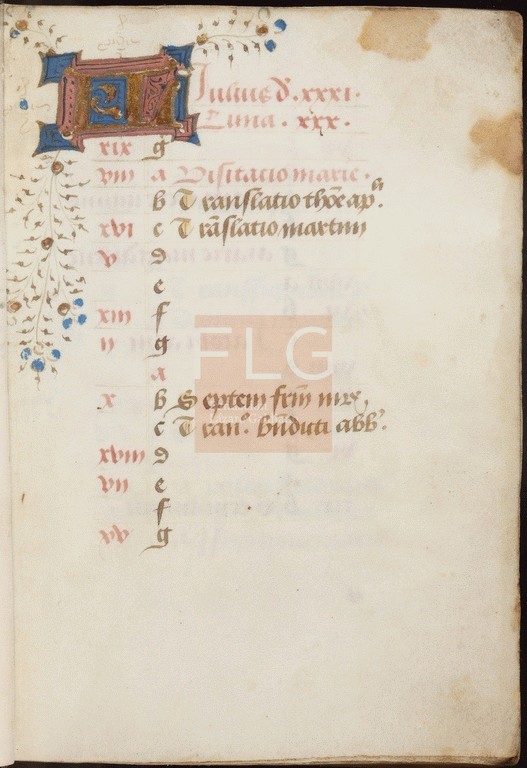 KL Iulius d. xxxi.
Luna. xxx.
xix g
viii a Visitacio marie.
b Translatio thōe apᵒˡⁱ
xvi c Trāslatio martini
v d
e
xiii f
ii g
a
x b Septem frm̄ mr̄e,
c Tranᵒ. bn̄dicti abbᵗ.
xviii d
vii e
f
xv g
FLG